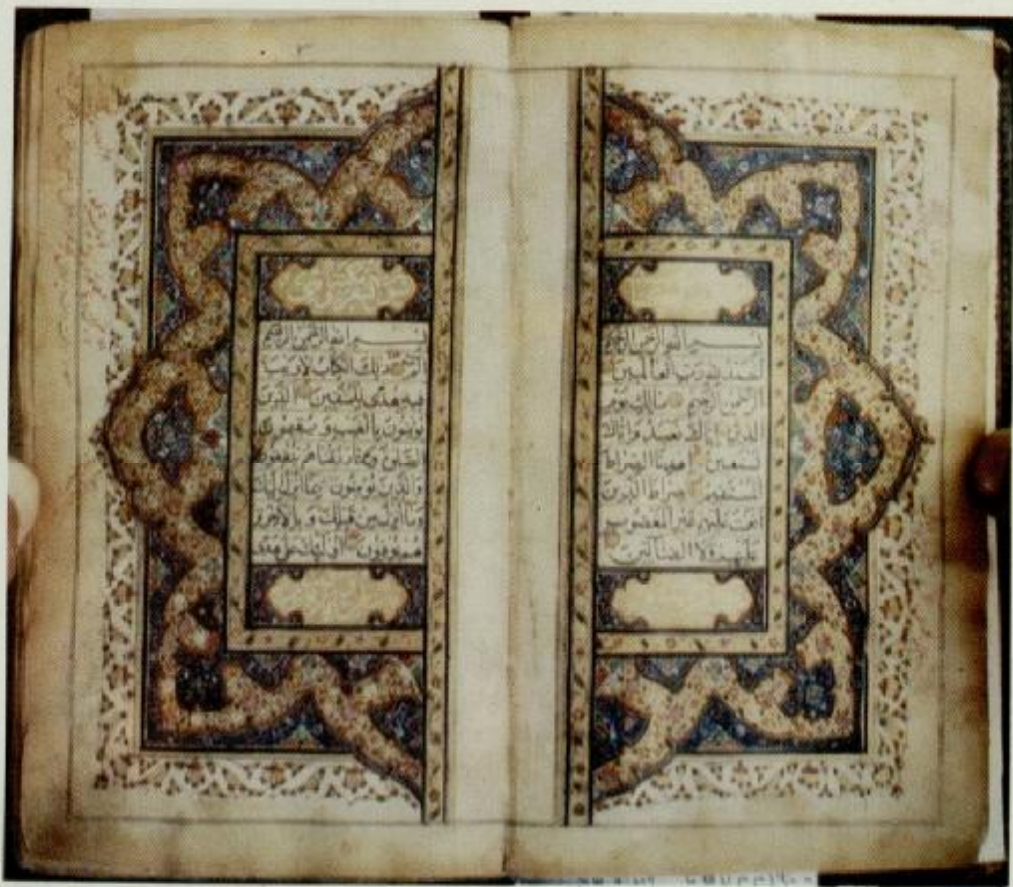 بسم الله الرحمن الرحيم
الحمد لله رب العالمين
الرحمن الرحيم مالك يوم
الدين اياك نعبد واياك
نستعين اهدنا الصراط
المستقيم صراط الذين
انعمت عليهم غير المغضوب
عليهم ولا الضالين
بسم الله الرحمن الرحيم
الم ذلك الكتاب لا ريب
فيه هدى للمتقين الذين
يؤمنون بالغيب ويقيمون
الصلوة ومما رزقناهم ينفقون
والذين يؤمنون بما انزل اليك
وما انزل من قبلك وبالاخرة
هم يوقنون اولئك على هدى